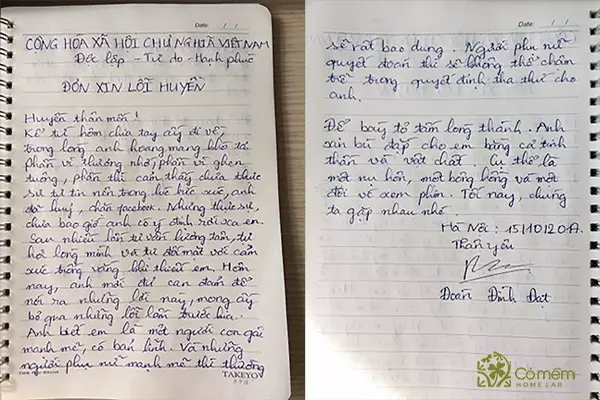 Date: / /
CỘNG HÒA XÃ HỘI CHỦ NGHĨA VIỆT NAM
Độc lập - Tự do - Hạnh phúc
ĐƠN XIN LỖI HUYỀN
Huyền thân mến !
Kể từ hôm chia tay ấy đi về
trong lòng anh hoang mang khó tả
Phần vì thương nhớ, phần vì ghen
tuông, phần thì cảm thấy chưa thực
sự tự tin nên trong lúc bức xúc, anh
đã huỷ, chặn facebook. Nhưng thực sự,
chưa bao giờ anh có ý định rời xa em.
Sau nhiều lần tự vấn lương tâm, tự
hỏi lòng mình và tự đối mặt với cảm
xúc trống vắng khi thiếu em. Hôm
nay, anh mới đủ can đảm để
nói ra những lời này, mong ấy
bỏ qua những lỗi lầm trước kia.
Anh biết em là một người con gái
mạnh mẽ, có bản lĩnh. Và những
người phụ nữ mạnh mẽ thì thường
TAKEYO
Date: / /
sẽ rất bao dung. Người phụ nữ
quyết đoán thì sẽ không thể chậm
trễ trong quyết định tha thứ cho
anh.
Để bày tỏ tấm lòng thành. Anh
xin bù đắp cho em bằng cả tinh
thần và vật chất. Cụ thể là
một nụ hôn, một bông hồng và một
đôi vé xem phim. Tối nay, chúng
ta gặp nhau nhé.
Hà Nội :
Thân yêu
Đoàn Đình Đạt
Cỏ mềm
HOME LAB